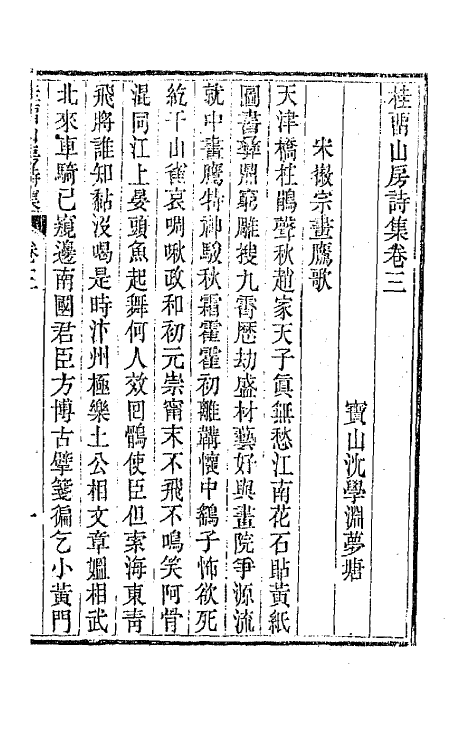 桂畱山房詩集卷三
寶山沈學淵夢塘
宋徽宗畫鷹歌
天津橋杜鵑聲秋趙家天子眞無愁江南花石貼黃紙
圖書彝鼎窮雕搜九霄歷劫盛材藝好與畫院爭源流
就中畫鷹特神駿秋霜霍霍初離鞲懷中鷂子怖欲死
紇干山雀哀啁啾政和初元崇甯末不飛不鳴笑阿骨
混同江上晏頭魚起舞何人效回鶻使臣但索海東靑
飛將誰知黏沒喝是時汴州極樂土公相文章媼相武
北來車騎已窺邊南國君臣方博古擘箋徧乞小黃門
桂畱山房詩集 卷三 一